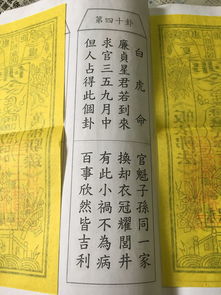 第四十卦
白虎命
官魁子孫同一家
廉貞星君若到來
換却衣冠耀閭井
求官三五九月中
有此小禍不為病
但人占得此個卦
百事欣然皆吉利